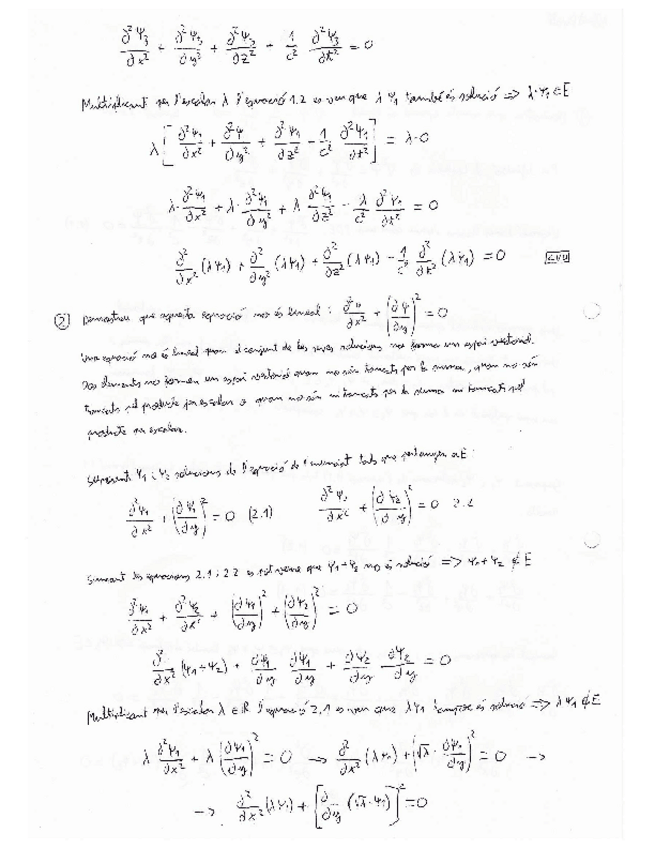 ∂²Ψ₃/∂x² + ∂²Ψ₃/∂y² + ∂²Ψ₃/∂z² - 1/c² ∂²Ψ₃/∂t² = 0
Multiplicant per l'escalar λ l'equació 1.2 es veu que λΨ₁ també és solució ⟹ λ·Ψ₁ ∈ E
λ[∂²Ψ₁/∂x² + ∂²Ψ/∂y² + ∂²Ψ₁/∂z² - 1/c² ∂²Ψ₁/∂t²] = λ·0
λ·∂²Ψ₁/∂x² + λ·∂²Ψ₁/∂y² + λ ∂²Ψ₁/∂z² - λ/c² ∂²Ψ₁/∂t² = 0
∂²/∂x² (λΨ₁) + ∂²/∂y² (λΨ₁) + ∂²/∂z² (λΨ₁) - 1/c² ∂²/∂t² (λΨ₁) = 0
② Demostreu que aquesta equació no és lineal: ∂²Ψ/∂x² + (∂Ψ/∂y)² = 0
Una equació no és lineal quan el conjunt de les seves solucions no forma un espai vectorial.
Dos elements no formen un espai vectorial quan no són tancats per la suma, quan no són
tancats pel producte per escalar o quan no són ni tancats per la suma ni tancats pel
producte per escalar.
Ψ₁ i Ψ₂ solucions de l'equació de l'enunciat tals que pertanyen a E:
∂²Ψ₁/∂x² + (∂Ψ₁/∂y)² = 0 (2.1) ∂²Ψ₂/∂x² + (∂Ψ₂/∂y)² = 0 2.2
Sumant les equacions 2.1 i 2.2 es veure que Ψ₁+Ψ₂ no és solució ⟹ Ψ₁+Ψ₂ ∉ E
∂²Ψ₁/∂x² + ∂²Ψ₂/∂x² + (∂Ψ₁/∂y)² + (∂Ψ₂/∂y)² = 0
∂²/∂x² (Ψ₁+Ψ₂) + ∂Ψ₁/∂y ∂Ψ₁/∂y + ∂Ψ₂/∂y ∂Ψ₂/∂y = 0
Multiplicant per l'escalar λ ∈ ℝ l'equació 2.1 es veu que λΨ₁ tampoc és solució ⟹ λΨ₁ ∉ E
λ ∂²Ψ₁/∂x² + λ(∂Ψ₁/∂y)² = 0 → ∂²/∂x² (λΨ₁) + (√λ · ∂Ψ₁/∂y)² = 0 →
→ ∂²/∂x² (λΨ₁) + [∂/∂y (√λ·Ψ₁)]² = 0